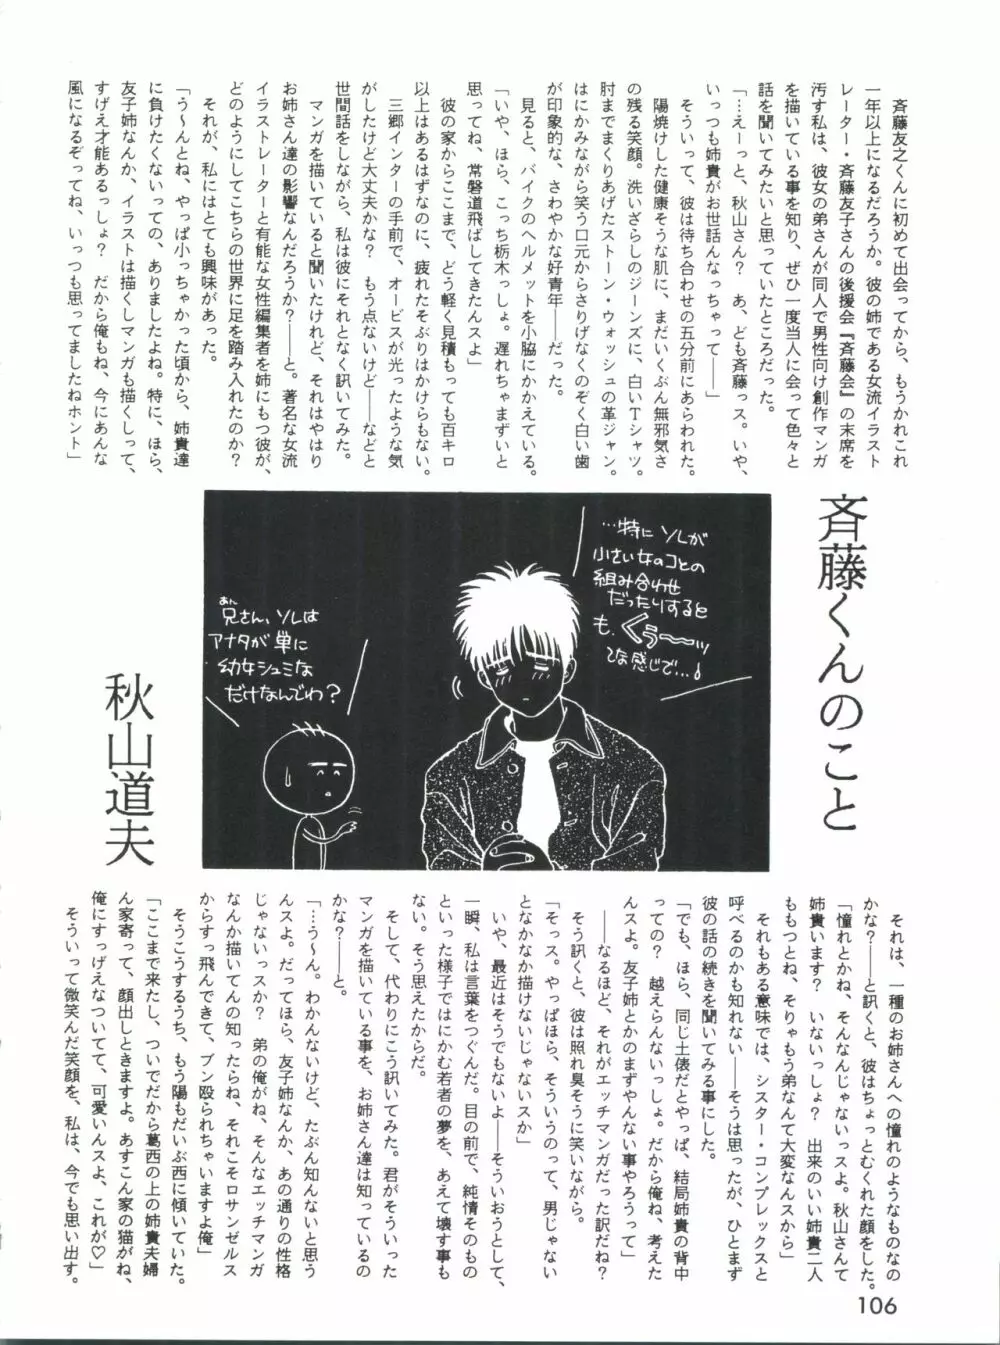 斉藤くんのこと
秋山道夫
斉藤友之くんに初めて出会ってから、もうかれこれ
一年以上になるだろうか。彼の姉である女流イラスト
レーター・斉藤友子さんの後援会『斉藤会』の末席を
汚す私は、彼女の弟さんが同人で男性向け創作マンガ
を描いている事を知り、ぜひ一度当人に会って色々と
話を聞いてみたいと思っていたところだった。
「…えーっと、秋山さん？　あ、ども斉藤っス。いや、
いっつも姉貴がお世話んなっちゃって――」
そういって、彼は待ち合わせの五分前にあらわれた。
陽焼けした健康そうな肌に、まだいくぶん無邪気さ
の残る笑顔。洗いざらしのジーンズに、白いTシャツ。
肘までまくりあげたストーン・ウォッシュの革ジャン。
はにかみながら笑う口元からさりげなくのぞく白い歯
が印象的な、さわやかな好青年――だった。
見ると、バイクのヘルメットを小脇にかかえている。
「いや、ほら、こっち栃木っしょ。遅れちゃまずいと
思ってね、常磐道飛ばしてきたんスよ」
彼の家からここまで、どう軽く見積もっても百キロ
以上はあるはずなのに、疲れたそぶりはかけらもない。
三郷インターの手前で、オービスが光ったような気
がしたけど大丈夫かな？　もう点ないけど――などと
世間話をしながら、私は彼にそれとなく訊いてみた。
マンガを描いていると聞いたけれど、それはやはり
お姉さん達の影響なんだろうか？――と。著名な女流
イラストレーターと有能な女性編集者を姉にもつ彼が、
どのようにしてこちらの世界に足を踏み入れたのか？
それが、私にはとても興味があった。
「う～んとね、やっぱ小っちゃかった頃から、姉貴達
に負けたくないっての、ありましたよね。特に、ほら、
友子姉なんか、イラストは描くしマンガも描くしって、
すげえ才能あるっしょ？　だから俺もね、今にあんな
風になるぞってね、いっつも思ってましたねホント」
…特に ソレが
小さい女のコとの
組み合わせ
だったりすると
も、くぅ――ッ
てな感じで…！
あん
兄さん、ソレは
アナタが 単に
幼女シュミな
だけなんでわ？
それは、一種のお姉さんへの憧れのようなものなの
かな？――と訊くと、彼はちょっとむくれた顔をした。
「憧れとかね、そんなんじゃないっスよ。秋山さんて
姉貴います？　いないっしょ？　出来のいい姉貴二人
ももつとね、そりゃもう弟なんて大変なんスから」
それもある意味では、シスター・コンプレックスと
呼べるのかも知れない――そうは思ったが、ひとまず
彼の話の続きを聞いてみる事にした。
「でも、ほら、同じ土俵だとやっぱ、結局姉貴の背中
っての？　越えらんないっしょ。だから俺ね、考えた
んスよ。友子姉とかのまずやんない事やろうって」
――なるほど、それがエッチマンガだった訳だね？
そう訊くと、彼は照れ臭そうに笑いながら。
「そっス。やっぱほら、そういうのって、男じゃない
となかなか描けないじゃないスか」
いや、最近はそうでもないよ――そういおうとして、
一瞬、私は言葉をつぐんだ。目の前で、純情そのもの
といった様子ではにかむ若者の夢を、あえて壊す事も
ない。そう思えたからだ。
そして、代わりにこう訊いてみた。君がそういった
マンガを描いている事を、お姉さん達は知っているの
かな？――と。
「…う～ん。わかんないけど、たぶん知んないと思う
んスよ。だってほら、友子姉なんか、あの通りの性格
じゃないっスか？　弟の俺がね、そんなエッチマンガ
なんか描いてんの知ったらね、それこそロサンゼルス
からすっ飛んできて、ブン殴られちゃいますよ俺」
そうこうするうち、もう陽もだいぶ西に傾いていた。
「ここまで来たし、ついでだから葛西の上の姉貴夫婦
ん家寄って、顔出しときますよ。あすこん家の猫がね、
俺にすっげえなついてて、可愛いんスよ、これが♡」
そういって微笑んだ笑顔を、私は、今でも思い出す。
106